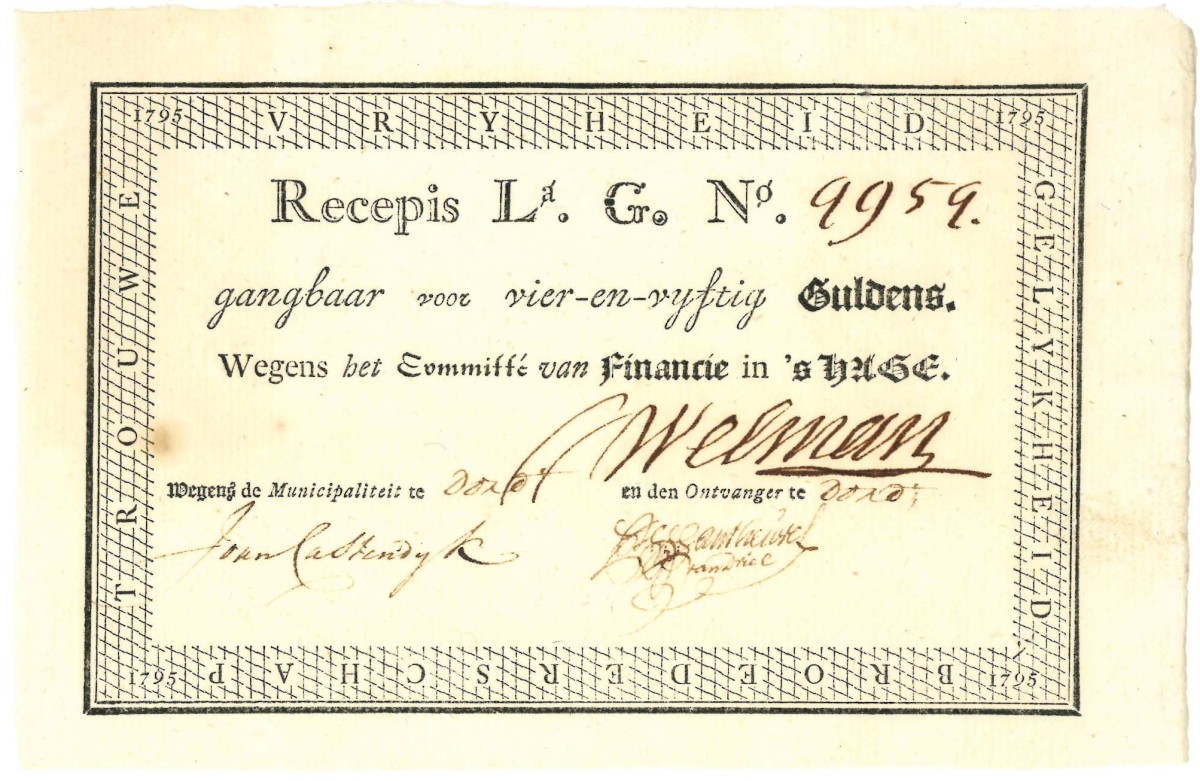 1795 VRYHEID 1795
GELYKHEID
Recepis Lª. G. Nº. 9959.
gangbaar voor vier-en-vyftig Guldens.
Wegens het Committé van Financie in 's HAGE.
Welman
Wegens de Municipaliteit te Dordt en den Ontvanger te Dordt
Joan Castendyk
TROUWE
1795 BROEDERSCHAP 1795